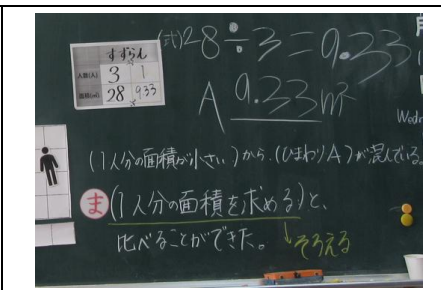 すずらん
人数(人) 3 1
面積(m²) 28 9.33
(式) 28÷3=9.33
A 9.33m²
Wedn
(1人分の面積が小さい)から、(ひまわりA)が混んでいる。
ま (1人分の面積を求める)と、
比べることができた。
↓そろえる